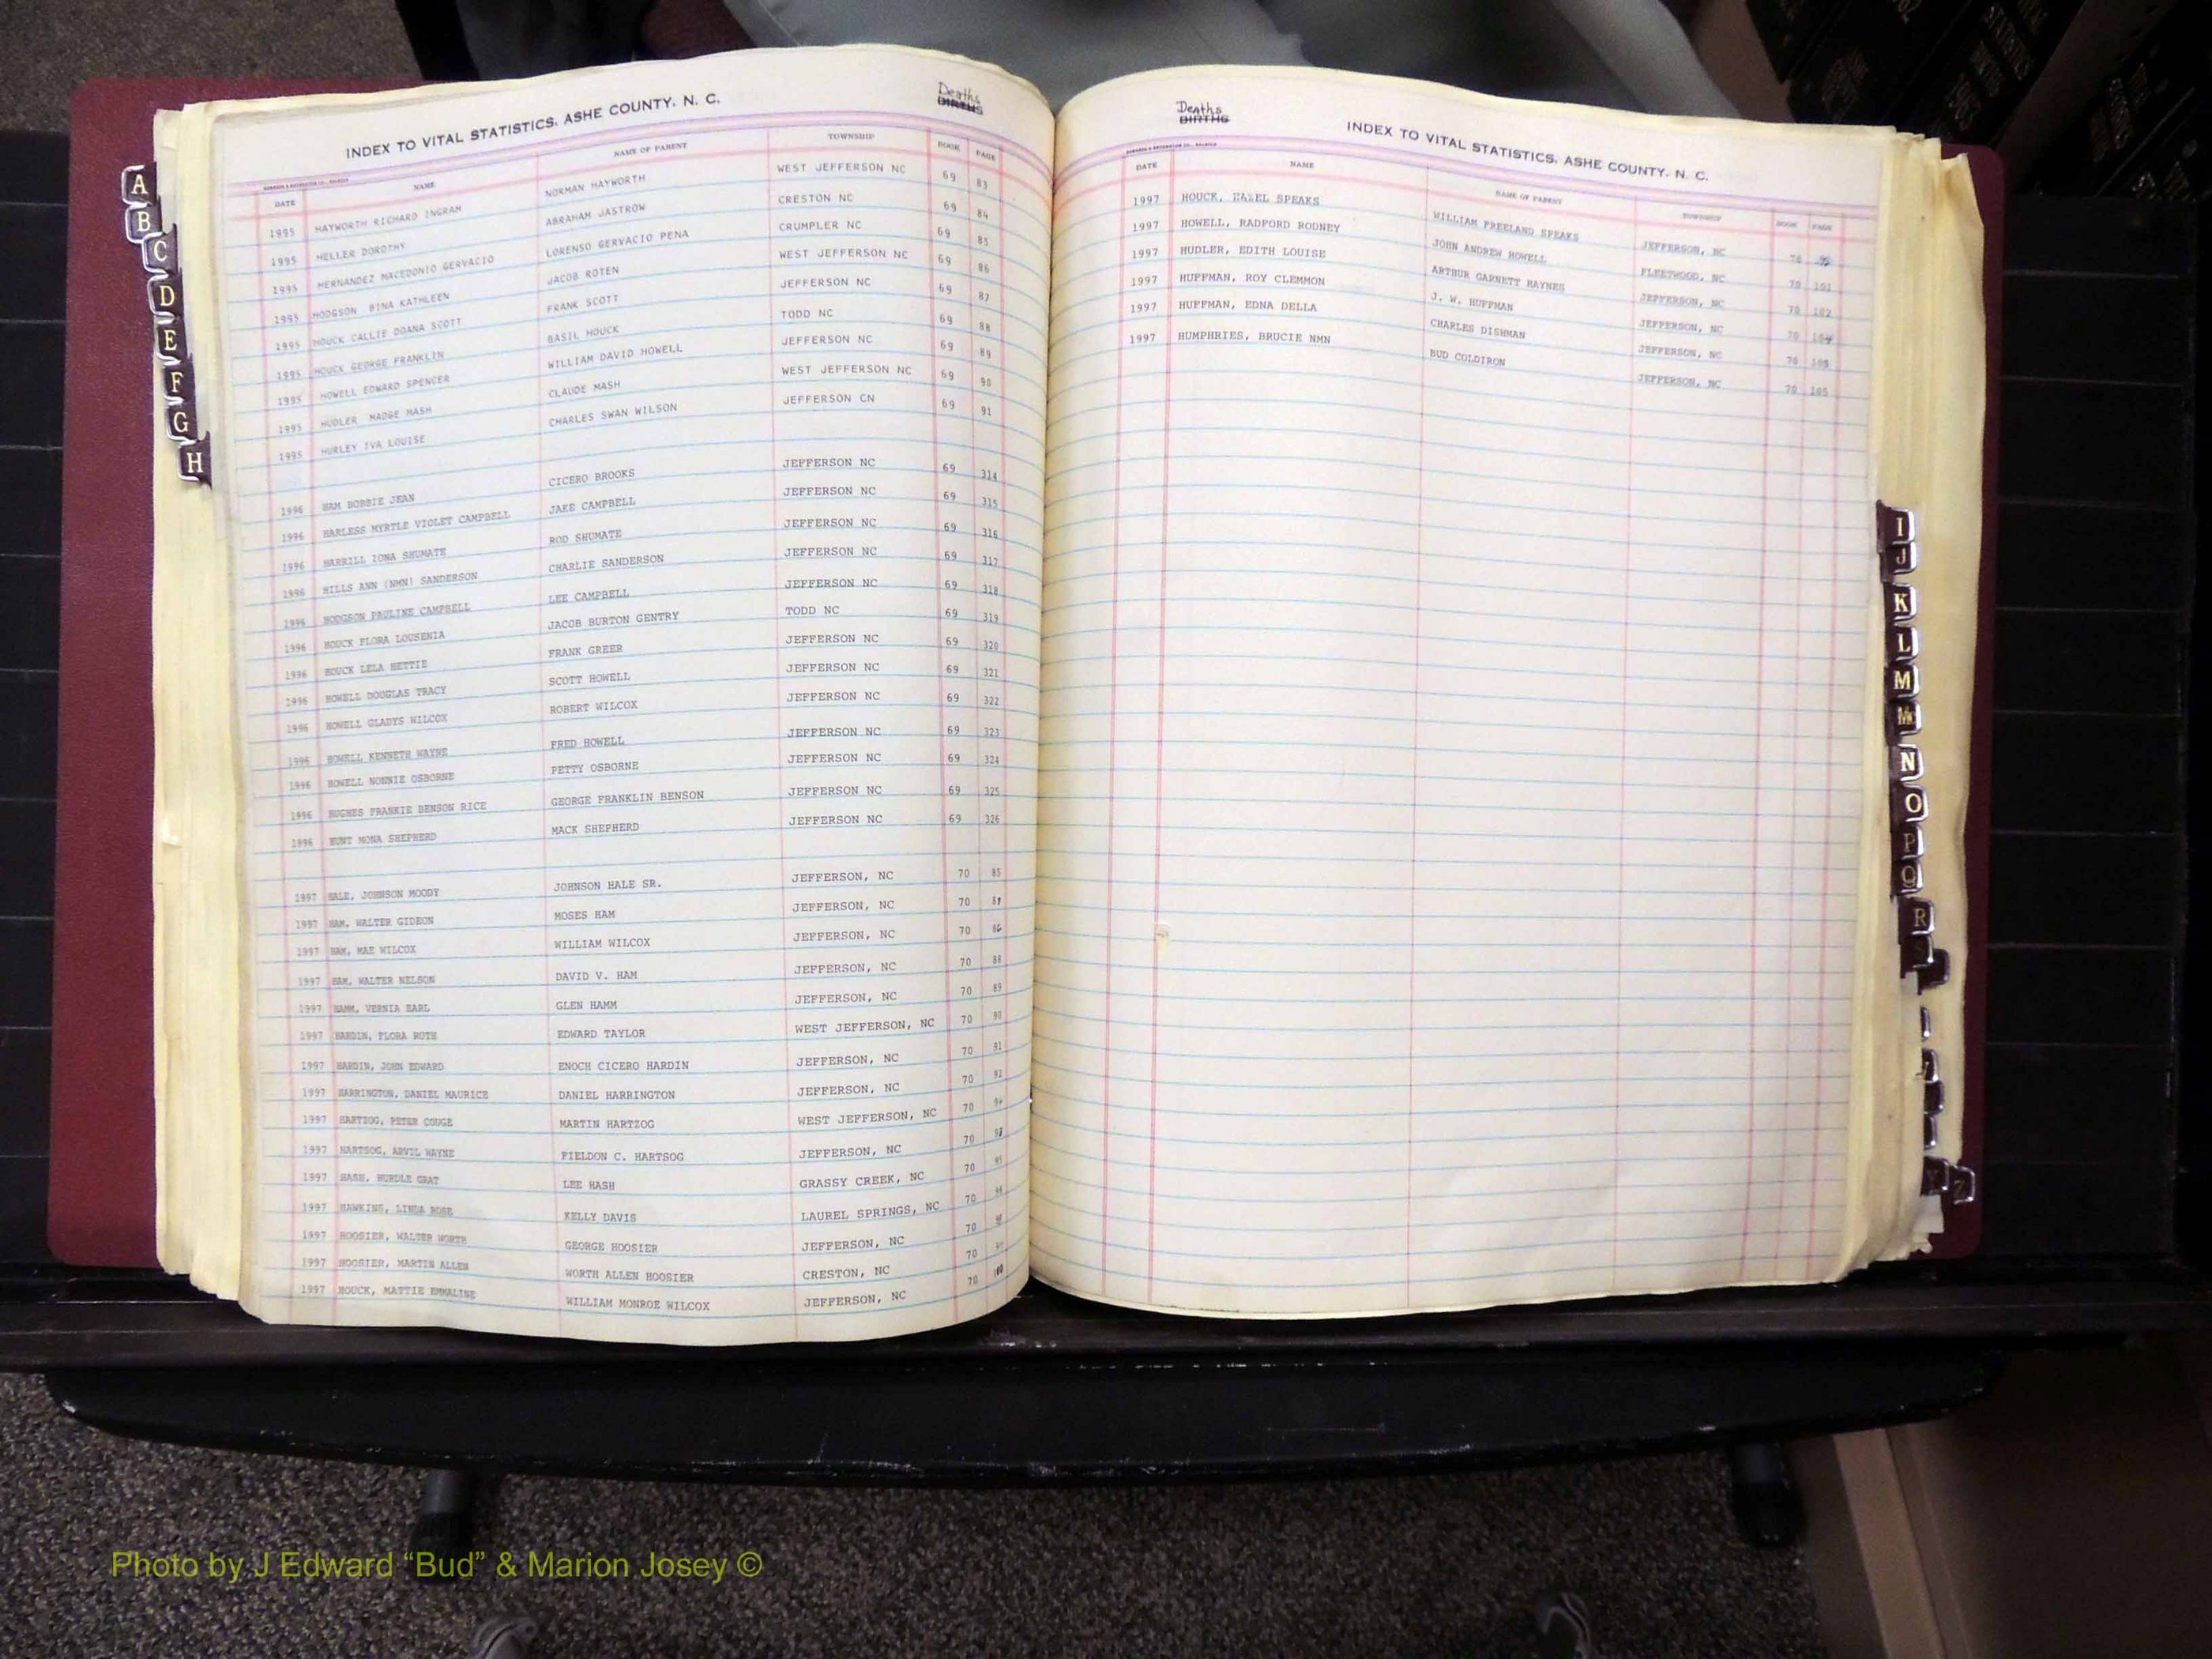 INDEX TO VITAL STATISTICS, ASHE COUNTY, N. C. Deaths BIRTHS
DATE NAME NAME OF PARENT TOWNSHIP BOOK PAGE
1995 HAYWORTH RICHARD INGRAM NORMAN HAYWORTH WEST JEFFERSON NC 69 83
1995 HELLER DOROTHY ABRAHAM JASTROW CRESTON NC 69 84
1995 HERNANDEZ MACEDONIO GERVACIO LORENSO GERVACIO PENA CRUMPLER NC 69 85
1995 HODGSON BINA KATHLEEN JACOB ROTEN WEST JEFFERSON NC 69 86
1995 HOUCK CALLIE DOANA SCOTT FRANK SCOTT JEFFERSON NC 69 87
1995 HOUCK GEORGE FRANKLIN BASIL HOUCK TODD NC 69 88
1995 HOWELL EDWARD SPENCER WILLIAM DAVID HOWELL JEFFERSON NC 69 89
1995 HUDLER MADGE MASH CLAUDE MASH WEST JEFFERSON NC 69 90
1995 HURLEY IVA LOUISE CHARLES SWAN WILSON JEFFERSON CN 69 91
1996 HAM BOBBIE JEAN CICERO BROOKS JEFFERSON NC 69 314
1996 HARLESS MYRTLE VIOLET CAMPBELL JAKE CAMPBELL JEFFERSON NC 69 315
1996 HARRILL IONA SHUMATE ROD SHUMATE JEFFERSON NC 69 316
1996 HILLS ANN (NMN) SANDERSON CHARLIE SANDERSON JEFFERSON NC 69 317
1996 HODGSON PAULINE CAMPBELL LEE CAMPBELL JEFFERSON NC 69 318
1996 HOUCK FLORA LOUSENIA JACOB BURTON GENTRY TODD NC 69 319
1996 HOUCK LELA HETTIE FRANK GREER JEFFERSON NC 69 320
1996 HOWELL DOUGLAS TRACY SCOTT HOWELL JEFFERSON NC 69 321
1996 HOWELL GLADYS WILCOX ROBERT WILCOX JEFFERSON NC 69 322
1996 HOWELL KENNETH WAYNE FRED HOWELL JEFFERSON NC 69 323
1996 HOWELL NONNIE OSBORNE PETTY OSBORNE JEFFERSON NC 69 324
1996 HUGHES FRANKIE BENSON RICE GEORGE FRANKLIN BENSON JEFFERSON NC 69 325
1996 HUNT MONA SHEPHERD MACK SHEPHERD JEFFERSON NC 69 326
1997 HALE, JOHNSON MOODY JOHNSON HALE SR. JEFFERSON, NC 70 85
1997 HAM, WALTER GIDEON MOSES HAM JEFFERSON, NC 70 87
1997 HAM, MAE WILCOX WILLIAM WILCOX JEFFERSON, NC 70 86
1997 HAM, WALTER NELSON DAVID V. HAM JEFFERSON, NC 70 88
1997 HAMM, VERNIA EARL GLEN HAMM JEFFERSON, NC 70 89
1997 HARDIN, FLORA RUTH EDWARD TAYLOR WEST JEFFERSON, NC 70 90
1997 HARDIN, JOHN EDWARD ENOCH CICERO HARDIN JEFFERSON, NC 70 91
1997 HARRINGTON, DANIEL MAURICE DANIEL HARRINGTON JEFFERSON, NC 70 92
1997 HARTZOG, PETER COUGE MARTIN HARTZOG WEST JEFFERSON, NC 70 94
1997 HARTSOG, ARVIL WAYNE FIELDON C. HARTSOG JEFFERSON, NC 70 93
1997 HASH, HURDLE GRAT LEE HASH GRASSY CREEK, NC 70 95
1997 HAWKINS, LINDA ROSE KELLY DAVIS LAUREL SPRINGS, NC 70
1997 HOOSIER, WALTER WORTH GEORGE HOOSIER JEFFERSON, NC 70
1997 HOOSIER, MARTIN ALLEN WORTH ALLEN HOOSIER CRESTON, NC 70
1997 HOUCK, MATTIE EMMALINE WILLIAM MONROE WILCOX JEFFERSON, NC 70 100
Deaths BIRTHS INDEX TO VITAL STATISTICS, ASHE COUNTY, N. C.
DATE NAME NAME OF PARENT TOWNSHIP BOOK PAGE
1997 HOUCK, HAZEL SPEAKS WILLIAM FREELAND SPEAKS JEFFERSON, NC 70
1997 HOWELL, RADFORD RODNEY JOHN ANDREW HOWELL FLEETWOOD, NC 70 101
1997 HUDLER, EDITH LOUISE ARTHUR GARNETT HAYNES JEFFERSON, NC 70 102
1997 HUFFMAN, ROY CLEMMON J. W. HUFFMAN JEFFERSON, NC 70 104
1997 HUFFMAN, EDNA DELLA CHARLES DISHMAN JEFFERSON, NC 70 103
1997 HUMPHRIES, BRUCIE NMN BUD COLDIRON JEFFERSON, NC 70 105
A
B
C
D
E
F
G
H
I
J
K
L
M
Mc
N
O
P
Q
R
Z
Photo by J Edward “Bud” & Marion Josey ©